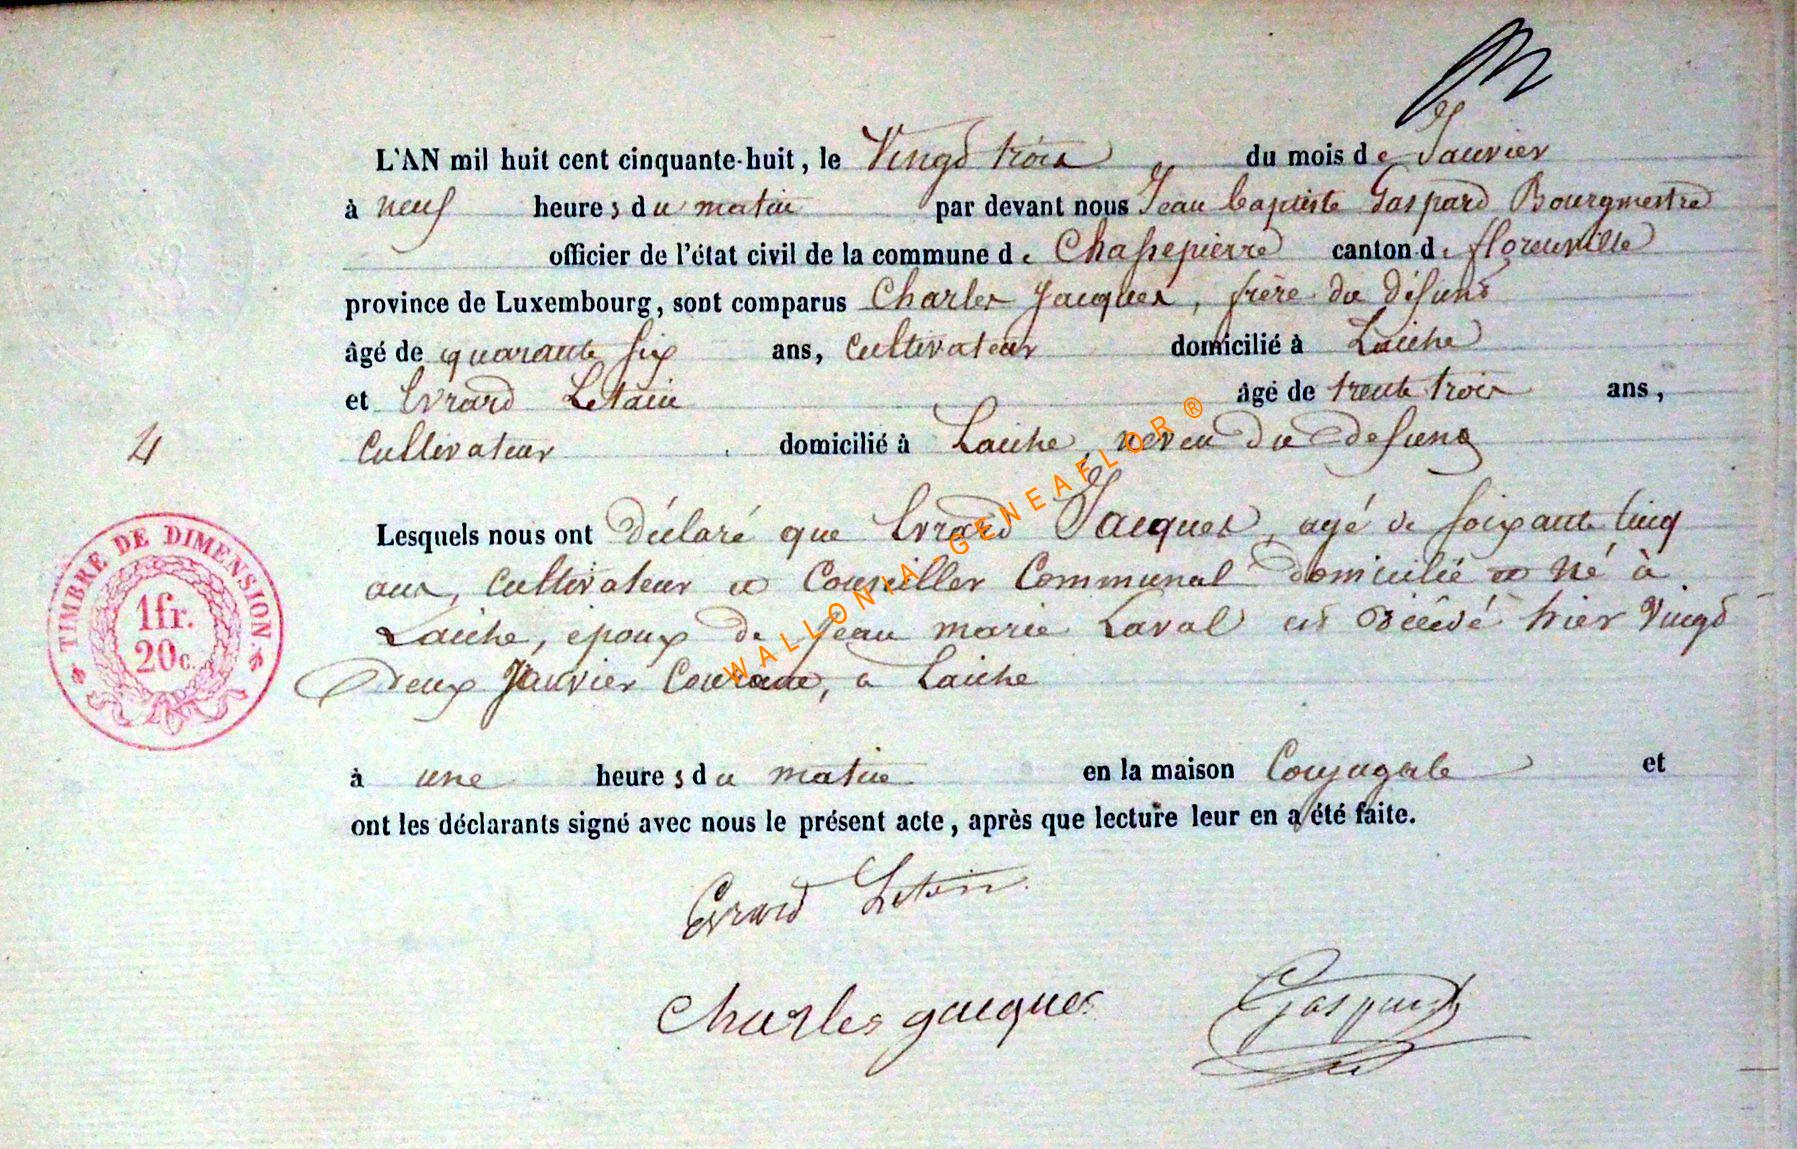 L'AN mil huit cent cinquante-huit, le Vingt trois du mois de Janvier
à neuf heures du matin par devant nous Jean baptiste Gaspard Bourgmestre
officier de l'état civil de la commune de Chassepierre canton de florenville
province de Luxembourg, sont comparus Charles Jacques, frère du défunt
âgé de quarante six ans, Cultivateur domicilié à Laiche
et Evrard Letain âgé de trente trois ans,
4
Cultivateur domicilié à Laiche, neveu du defunt
Lesquels nous ont déclaré que Evrard Jacques, agé de soixante cinq
ans, Cultivateur et Conseiller Communal domicilié et né à
Laiche, epoux de Jean marie Laval est décédé hier Vingt
deux Janvier Courant, a Laiche
à une heures du matin en la maison Conjugale et
ont les déclarants signé avec nous le présent acte, après que lecture leur en a été faite.
Evrard Letain
Charles Jacques
Gaspard
TIMBRE DE DIMENSION
1fr.
20c.
WALLONIA GENEAFLOR ®